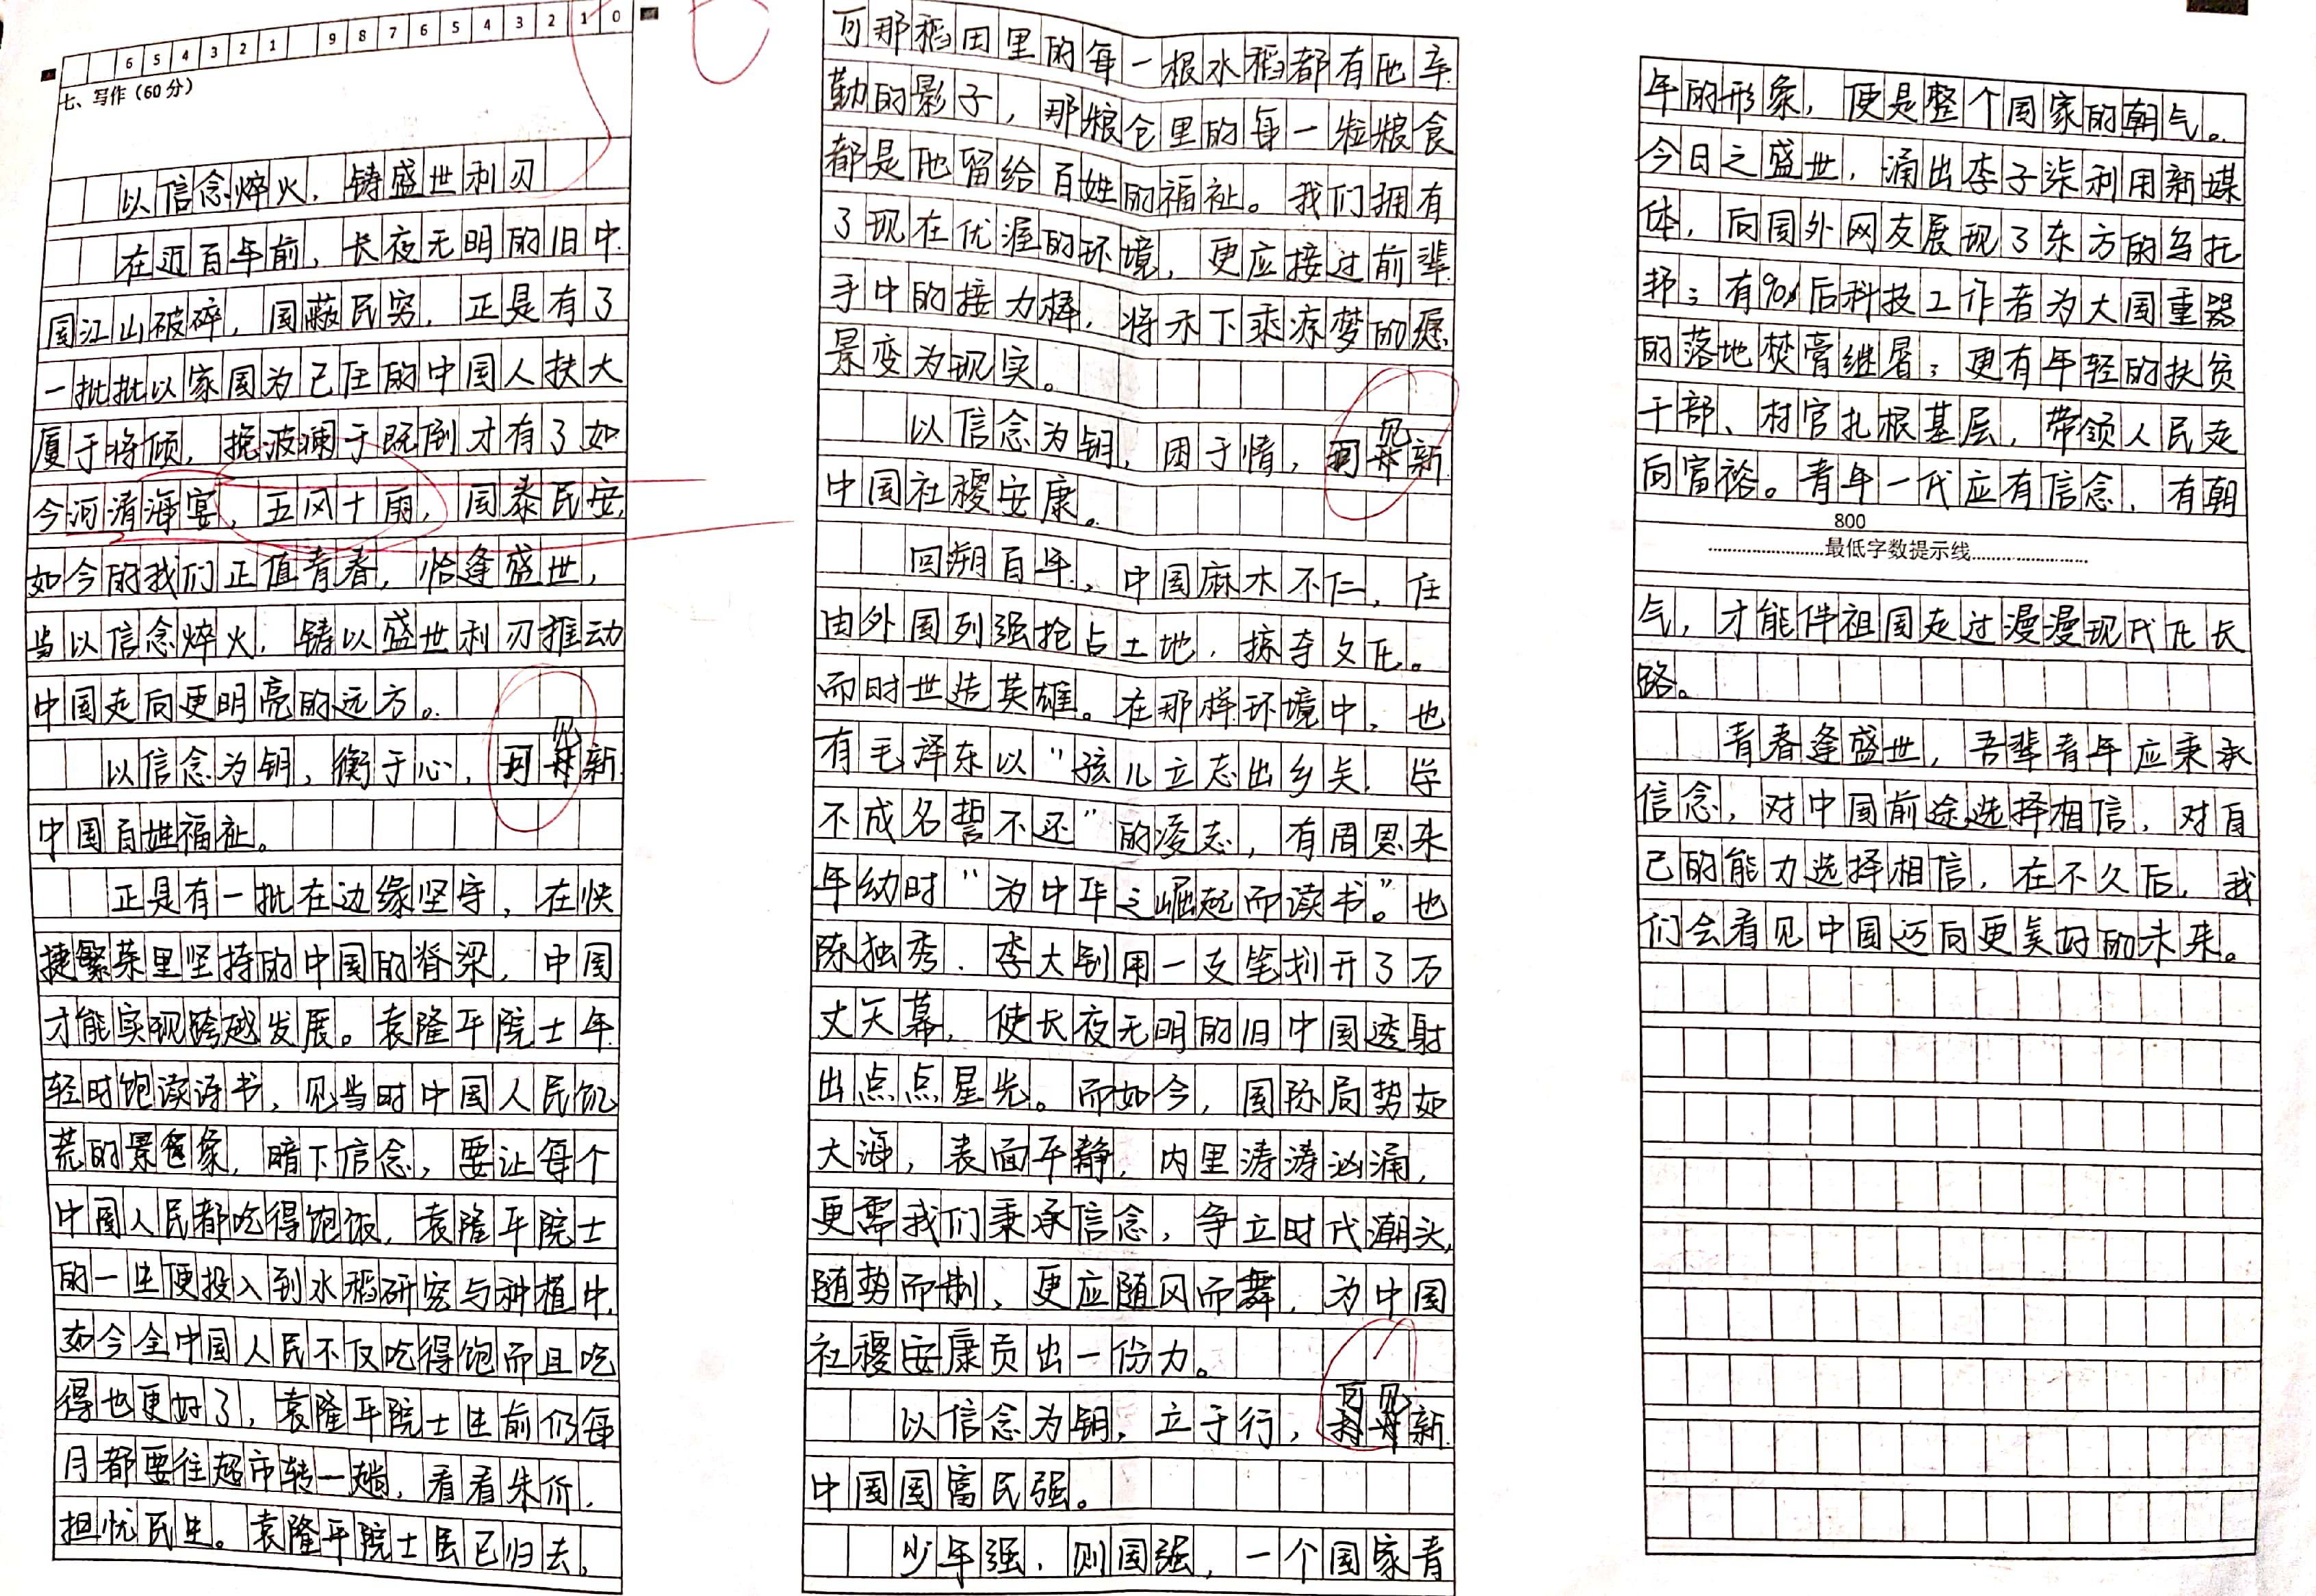 6 5 4 3 2 1 9 8 7 6 5 4 3 2 1 0
七、写作（60分）
以信念焠火，铸盛世利刃
在近百年前，长夜无明的旧中
国江山破碎，国蔽民穷，正是有了
一批批以家国为己任的中国人扶大
厦于将倾，挽波澜于既倒才有了如
今河清海宴，五风十雨，国泰民安，
如今的我们正值青春，恰逢盛世，
当以信念焠火，铸以盛世利刃推动
中国走向更明亮的远方。
以信念为钥，衡于心，可见新
中国百姓福祉。
正是有一批在边缘坚守，在快
捷繁荣里坚持的中国的脊梁，中国
才能实现跨越发展。袁隆平院士年
轻时饱读诗书，见当时中国人民饥
荒的景象，暗下信念，要让每个
中国人民都吃得饱饭，袁隆平院士
的一生便投入到水稻研究与种植中，
如今全中国人民不仅吃得饱而且吃
得也更好了，袁隆平院士生前仍每
月都要往超市转一趟，看看米价，
担忧民生。袁隆平院士虽已归去，
可那稻田里的每一根水稻都有他辛
勤的影子，那粮仓里的每一粒粮食
都是他留给百姓的福祉。我们拥有
了现在优渥的环境，更应接过前辈
手中的接力棒，将禾下乘凉梦的愿
景变为现实。
以信念为钥，困于情，可见新
中国社稷安康。
回溯百年，中国麻木不仁，任
由外国列强抢占土地，掠夺文化。
而时世造英雄。在那样环境中，也
有毛泽东以“孩儿立志出乡关，学
不成名誓不还”的凌志，有周恩来
年幼时“为中华之崛起而读书。”也
陈独秀、李大钊用一支笔划开了万
丈天幕，使长夜无明的旧中国透射
出点点星光。而如今，国际局势如
大海，表面平静，内里涛涛汹涌，
更需我们秉承信念，争立时代潮头，
随势而制，更应随风而舞，为中国
社稷安康贡出一份力。
以信念为钥，立于行，可见新
中国国富民强。
少年强，则国强，一个国家青
年的形象，便是整个国家的朝气。
今日之盛世，涌出李子柒利用新媒
体，向国外网友展现了东方的乌托
邦；有90后科技工作者为大国重器
的落地焚膏继晷；更有年轻的扶贫
干部、村官扎根基层，带领人民走
向富裕。青年一代应有信念，有朝
800
最低字数提示线
气，才能伴祖国走过漫漫现代化长
路。
青春逢盛世，吾辈青年应秉承
信念，对中国前途选择相信，对自
己的能力选择相信，在不久后，我
们会看见中国迈向更美好的未来。